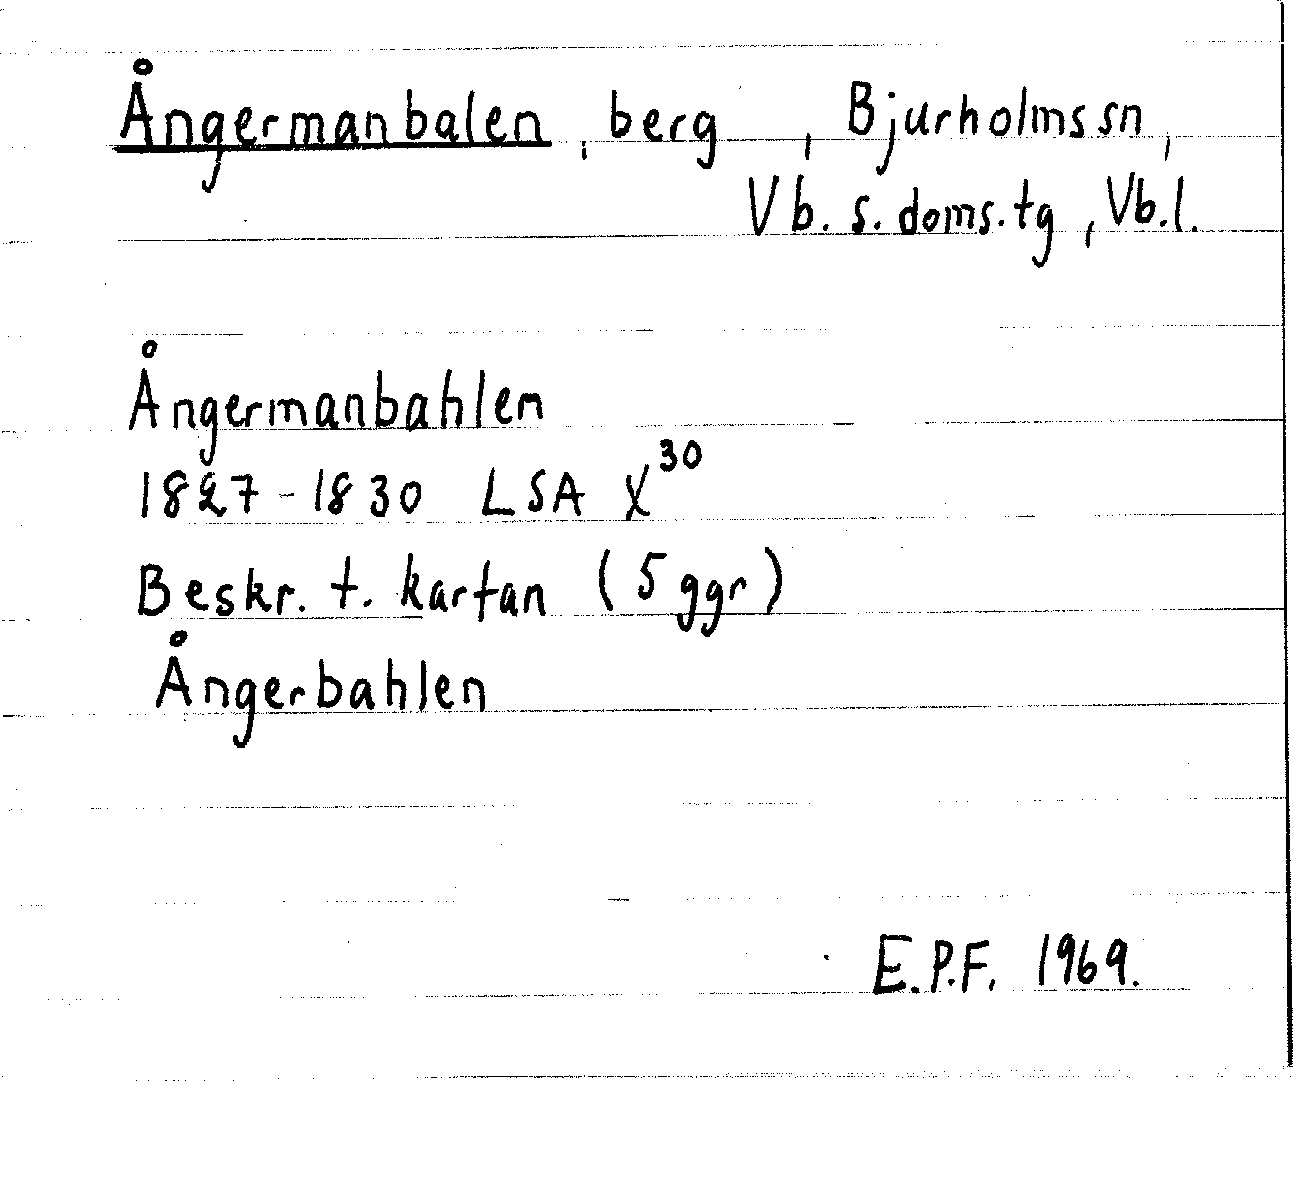 Ångermanbalen, berg, Bjurholms sn,
Vb. s. doms. tg, Vb. l.
Ångermanbahlen
1827-1830 LSA X³⁰
Beskr. t. kartan (5 ggr)
Ångerbahlen
E.P.F. 1969.